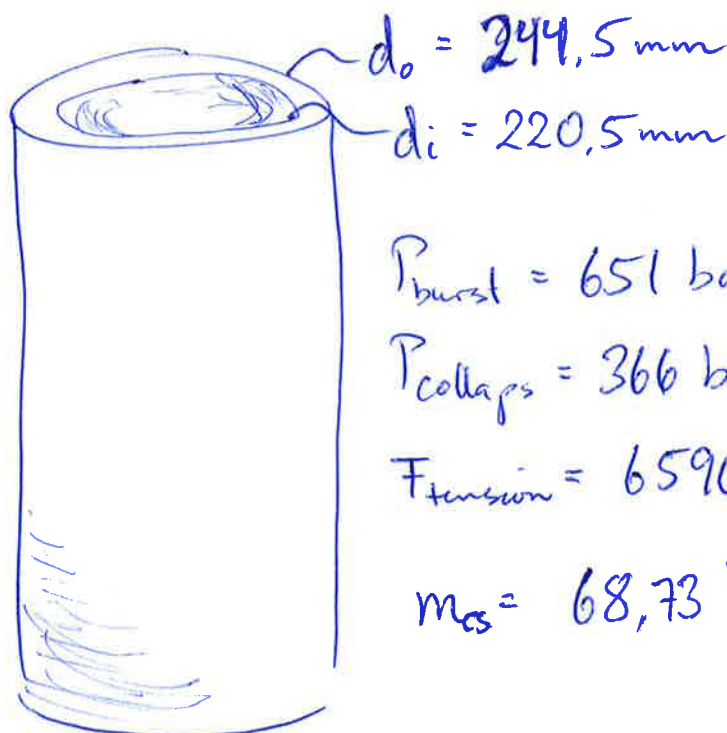 d₀ = 244,5 mm
dᵢ = 220,5 mm
P_burst = 651 ba
P_collaps = 366 b
F_tension = 6590
m_cs = 68,73